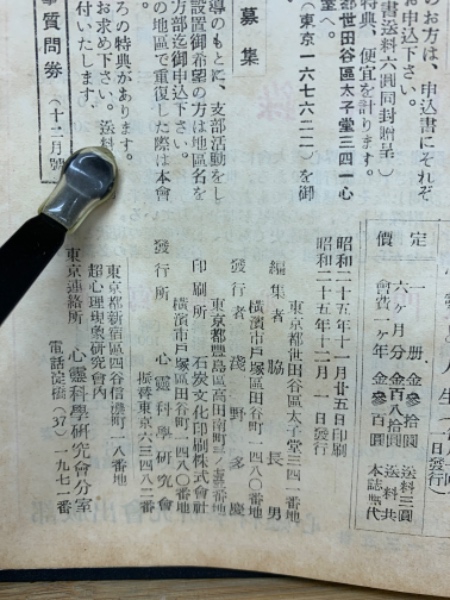 のお方は、申込書にそれぞ
お申込下さい。
書送料六圓同封贈呈）
特典、便宜を計ります。
都世田谷區太子堂三四一心
室へ。
（東京一六七六二二）を御
募集
導のもとに、支部活動をし
設置御希望の方は地區名を
方部迄御申込下さい。
の地區で重複した際は本會
ろの特典があります。
お求め下さい。送料
付いたします。
質問券（十二月號）
定價
一册 金參拾圓 送料三圓
六ヶ月分 金百八拾圓 送料共
會費一ヶ年 金參百圓 本誌無代
昭和二十五年十一月廿五日印刷
昭和二十五年十二月一日發行
東京都世田谷區太子堂三四一番地
編集者 脇長男
横濱市戸塚區田谷町一四八〇番地
發行者 淺野多慶
東京都豐島區高田南町
印刷所 石炭文化印刷株式會社
横濱市戸塚區田谷町一四八〇番地
發行所 心靈科學研究會
振替東京六三四八二番
東京都新宿區四谷信濃町一八番地
超心理現象研究會内
東京連絡所 心靈科學研究會分室
電話淀橋（37）一九七一番